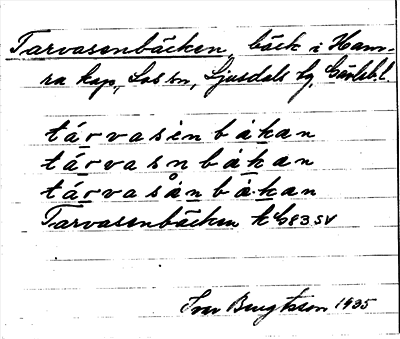 Tarvasenbäcken, bäck i Ham-
ra kap., Los sn, Ljusdals tg, Gävleb. l.
tárvasènbäkan
tárvasnbäkan
tárvasånbäkan
Tarvasenbäcken k 683 SV
Ivar Bengtsson 1935